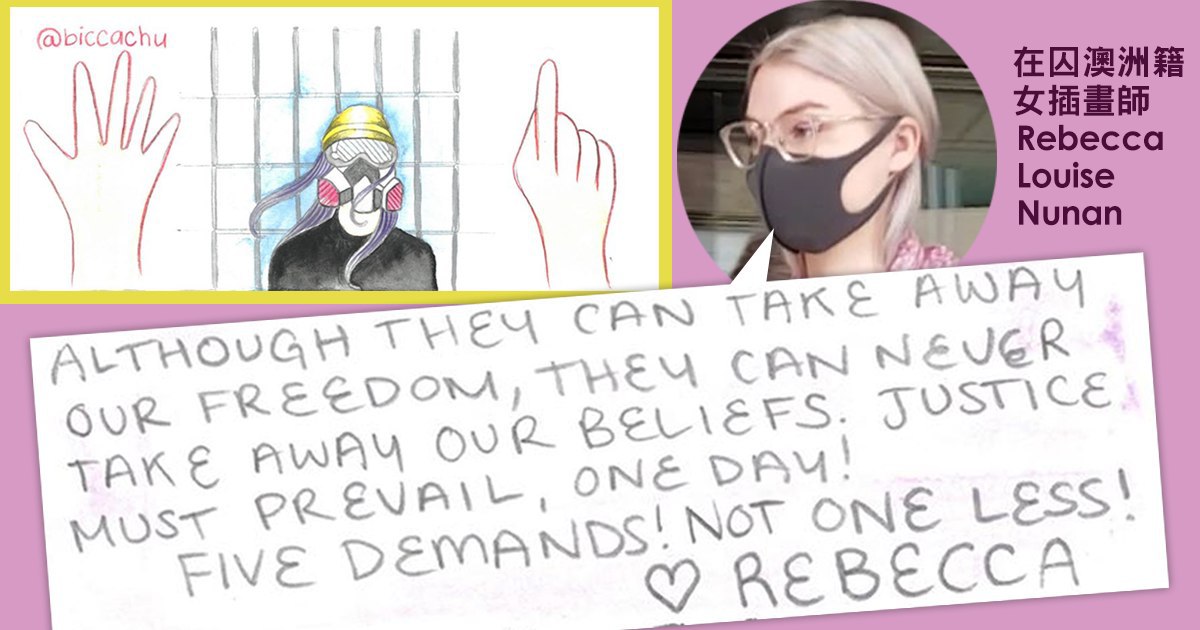 @biccachu
在囚澳洲籍
女插畫師
Rebecca
Louise
Nunan
ALTHOUGH THEY CAN TAKE AWAY
OUR FREEDOM, THEY CAN NEVER
TAKE AWAY OUR BELIEFS. JUSTICE
MUST PREVAIL, ONE DAY!
FIVE DEMANDS! NOT ONE LESS!
♡ REBECCA